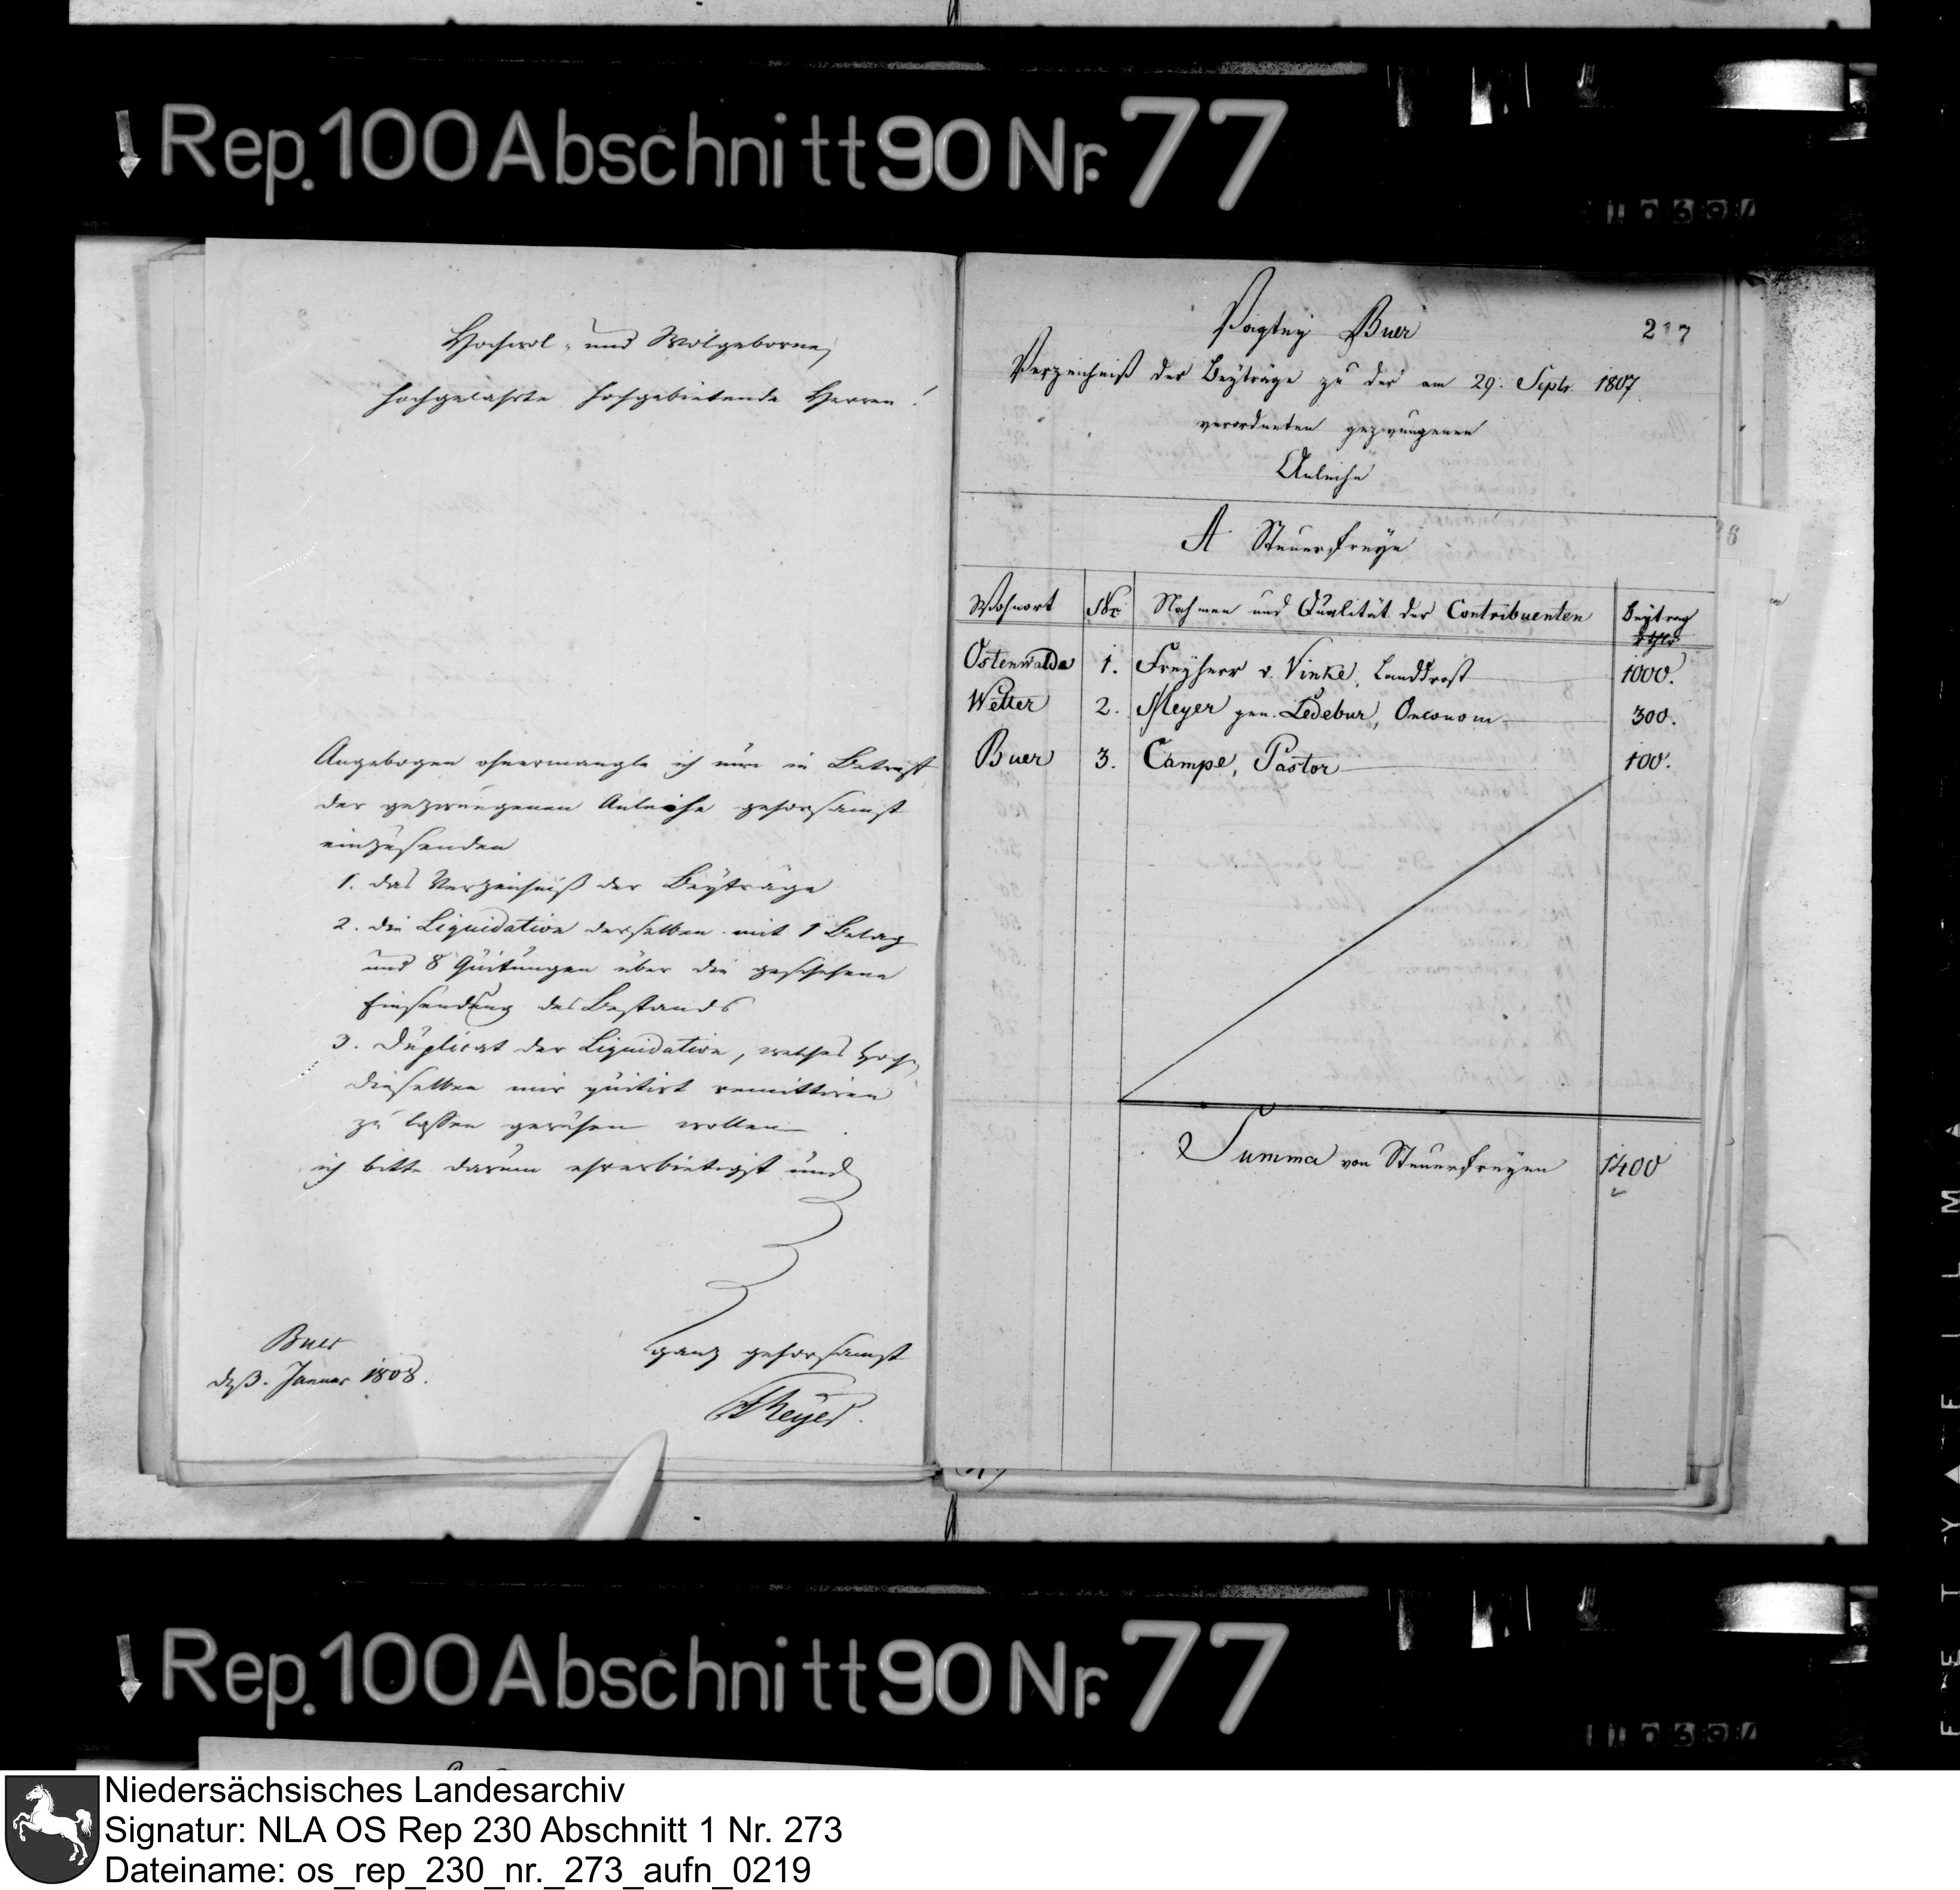 Rep. 100 Abschnitt 90 Nr. 77
Hochwol- und Wolgeborne,
Hochgelahrte Hochgebietende Herren!
Angebogen ohnermangle ich nun in Betreff
der gezwungenen Anleihe gehorsamst
einzusenden
1. das Verzeichniß der Beyträge
2. die Liquidation derselben mit 1 Belag
und 8 Quitungen über die geschehene
Einsendung des Bestands
3. Duplicat der Liquidation, welches Hoch
dieselben mir quitirt remittiren
zu lassen geruhen wollen
ich bitte darum ehrerbietigst und
ganz gehorsamst
Meyer.
Buer
Januar 1808.
Vogtey Buer
217
Verzeichniß der Beyträge zu der am 29. Septr. 1807
verordneten gezwungenen
Anleihe
A Steuerfreye
Wohnort Nr. Nahmen und Qualität der Contribuenten Beytrag
rthlr
Ostenwalde 1. Freyherr v. Vinke, Landdrost 1000.
Wetter 2. Meyer gen. Ledebur, Oeconom 300.
Buer 3. Campe, Pastor 100.
Summa von Steuerfreyen 1400
Rep. 100 Abschnitt 90 Nr. 77
Niedersächsisches Landesarchiv
Signatur: NLA OS Rep 230 Abschnitt 1 Nr. 273
Dateiname: os_rep_230_nr._273_aufn_0219